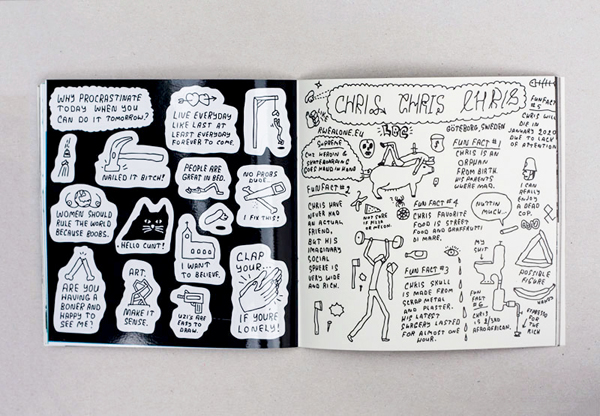 WHY PROCRASTINATE
TODAY WHEN YOU
CAN DO IT TOMORROW?
LIVE EVERYDAY
LIKE LAST AT
LEAST EVERYDAY
FOREVER TO COME.
NAILED IT BITCH!
PEOPLE ARE
GREAT IN BED.
NO PROBS
DUDE
I FIX THIS!
WOMEN SHOULD
RULE THE WORLD
BECAUSE BOOBS.
HELLO CUNT!
I WANT
TO BELIEVE.
CLAP
YOUR...
IF YOURE
LONELY!
ARE YOU
HAVING A
BONER AND
HAPPY TO
SEE ME?
ART.
MAKE IT
SENSE.
UZI'S ARE
EASY TO
DRAW.
CHRIS CHRIS CHRIS
RWFALONE.EU
GÖTEBORG, SWEDEN
SUPREME
CUZ HEROIN &
SKATEBOARDING
GOES HAND IN HAND
FUN FACT #1
CHRIS IS AN
ORPHAN
FROM BIRTH.
HIS PARENTS
WHERE MAD.
FUNFACT
#5
CHRIS WILL
DIE IN
JANUARY 2020
DUE TO LACK
OF ATTENTION
I CAN
REALLY
ENJOY
A DEAD
COP.
FUN FACT #2
CHRIS HAVE
NEVER HAD
AN ACTUAL
FRIEND,
BUT HIS
IMAGINARY
SOCIAL
SPHERE IS
VERY WIDE
AND RICH.
NOT SURE IF
PIZZA
OR MELON.
FUN FACT #4
CHRIS FAVORITE
FOOD IS STREET
FOOD AND
DI MARE.
NUTTIN
MUCH...
MY
SHIT
POSSIBLE
FIGURE
FUN FACT #3
CHRIS SKULL
IS MADE FROM
SCRAP METAL
AND PLASTER.
HIS LATEST
SURGERY LASTED
FOR ALMOST ONE
HOUR.
FUN
FACT
#6
CHRIS
IS
AFROAFRICAN.
HANDS
ESPRESSO
FOR
THE
RICH